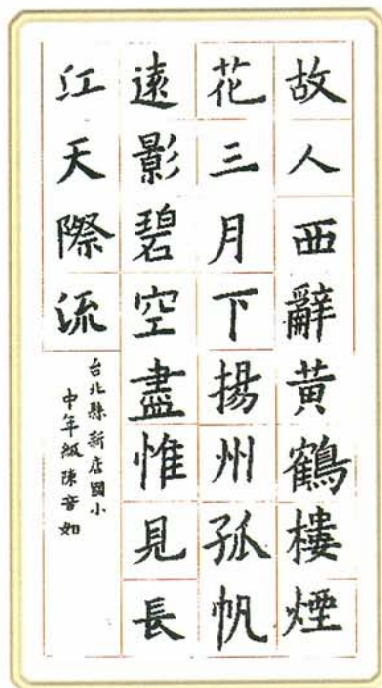 故人西辭黃鶴樓煙
花三月下揚州孤帆
遠影碧空盡惟見長
江天際流
台北縣新店國小
中年級陳音如